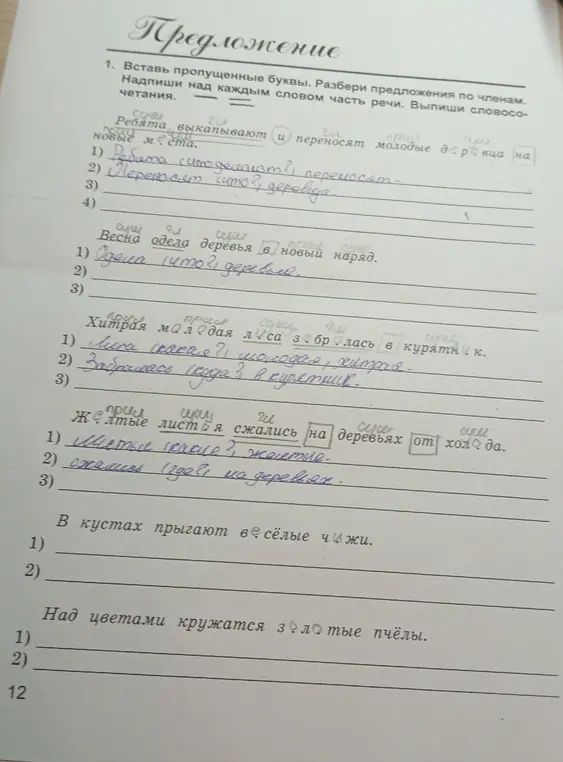 Предложение
1. Вставь пропущенные буквы. Разбери предложения по членам.
Надпиши над каждым словом часть речи. Выпиши словосо-
четания.
сущ гл гл прил сущ
Ребята выкапывают и переносят молодые д е р е вца на
прил сущ
новые м е ста.
1) Ребята (что делают?) переносят.
2) Переносят (что?) деревца.
3)
4)
сущ гл сущ сущ
Весна одела деревья в новый наряд.
1) Одела (что?) деревья.
2)
3)
прил прил сущ гл сущ
Хитрая м о л о дая л и са з а бр а лась в курятн и к.
1) Лиса (какая?) молодая, хитрая.
2) Забралась (куда?) в курятник.
3)
прил сущ гл сущ сущ
Ж ё лтые лист ь я сжались на деревьях от хол о да.
1) Листья (какие?) желтые.
2) сжались (где?) на деревьях.
3)
В кустах прыгают в е сёлые ч и жи.
1)
2)
Над цветами кружатся з о л о тые пчёлы.
1)
2)
12